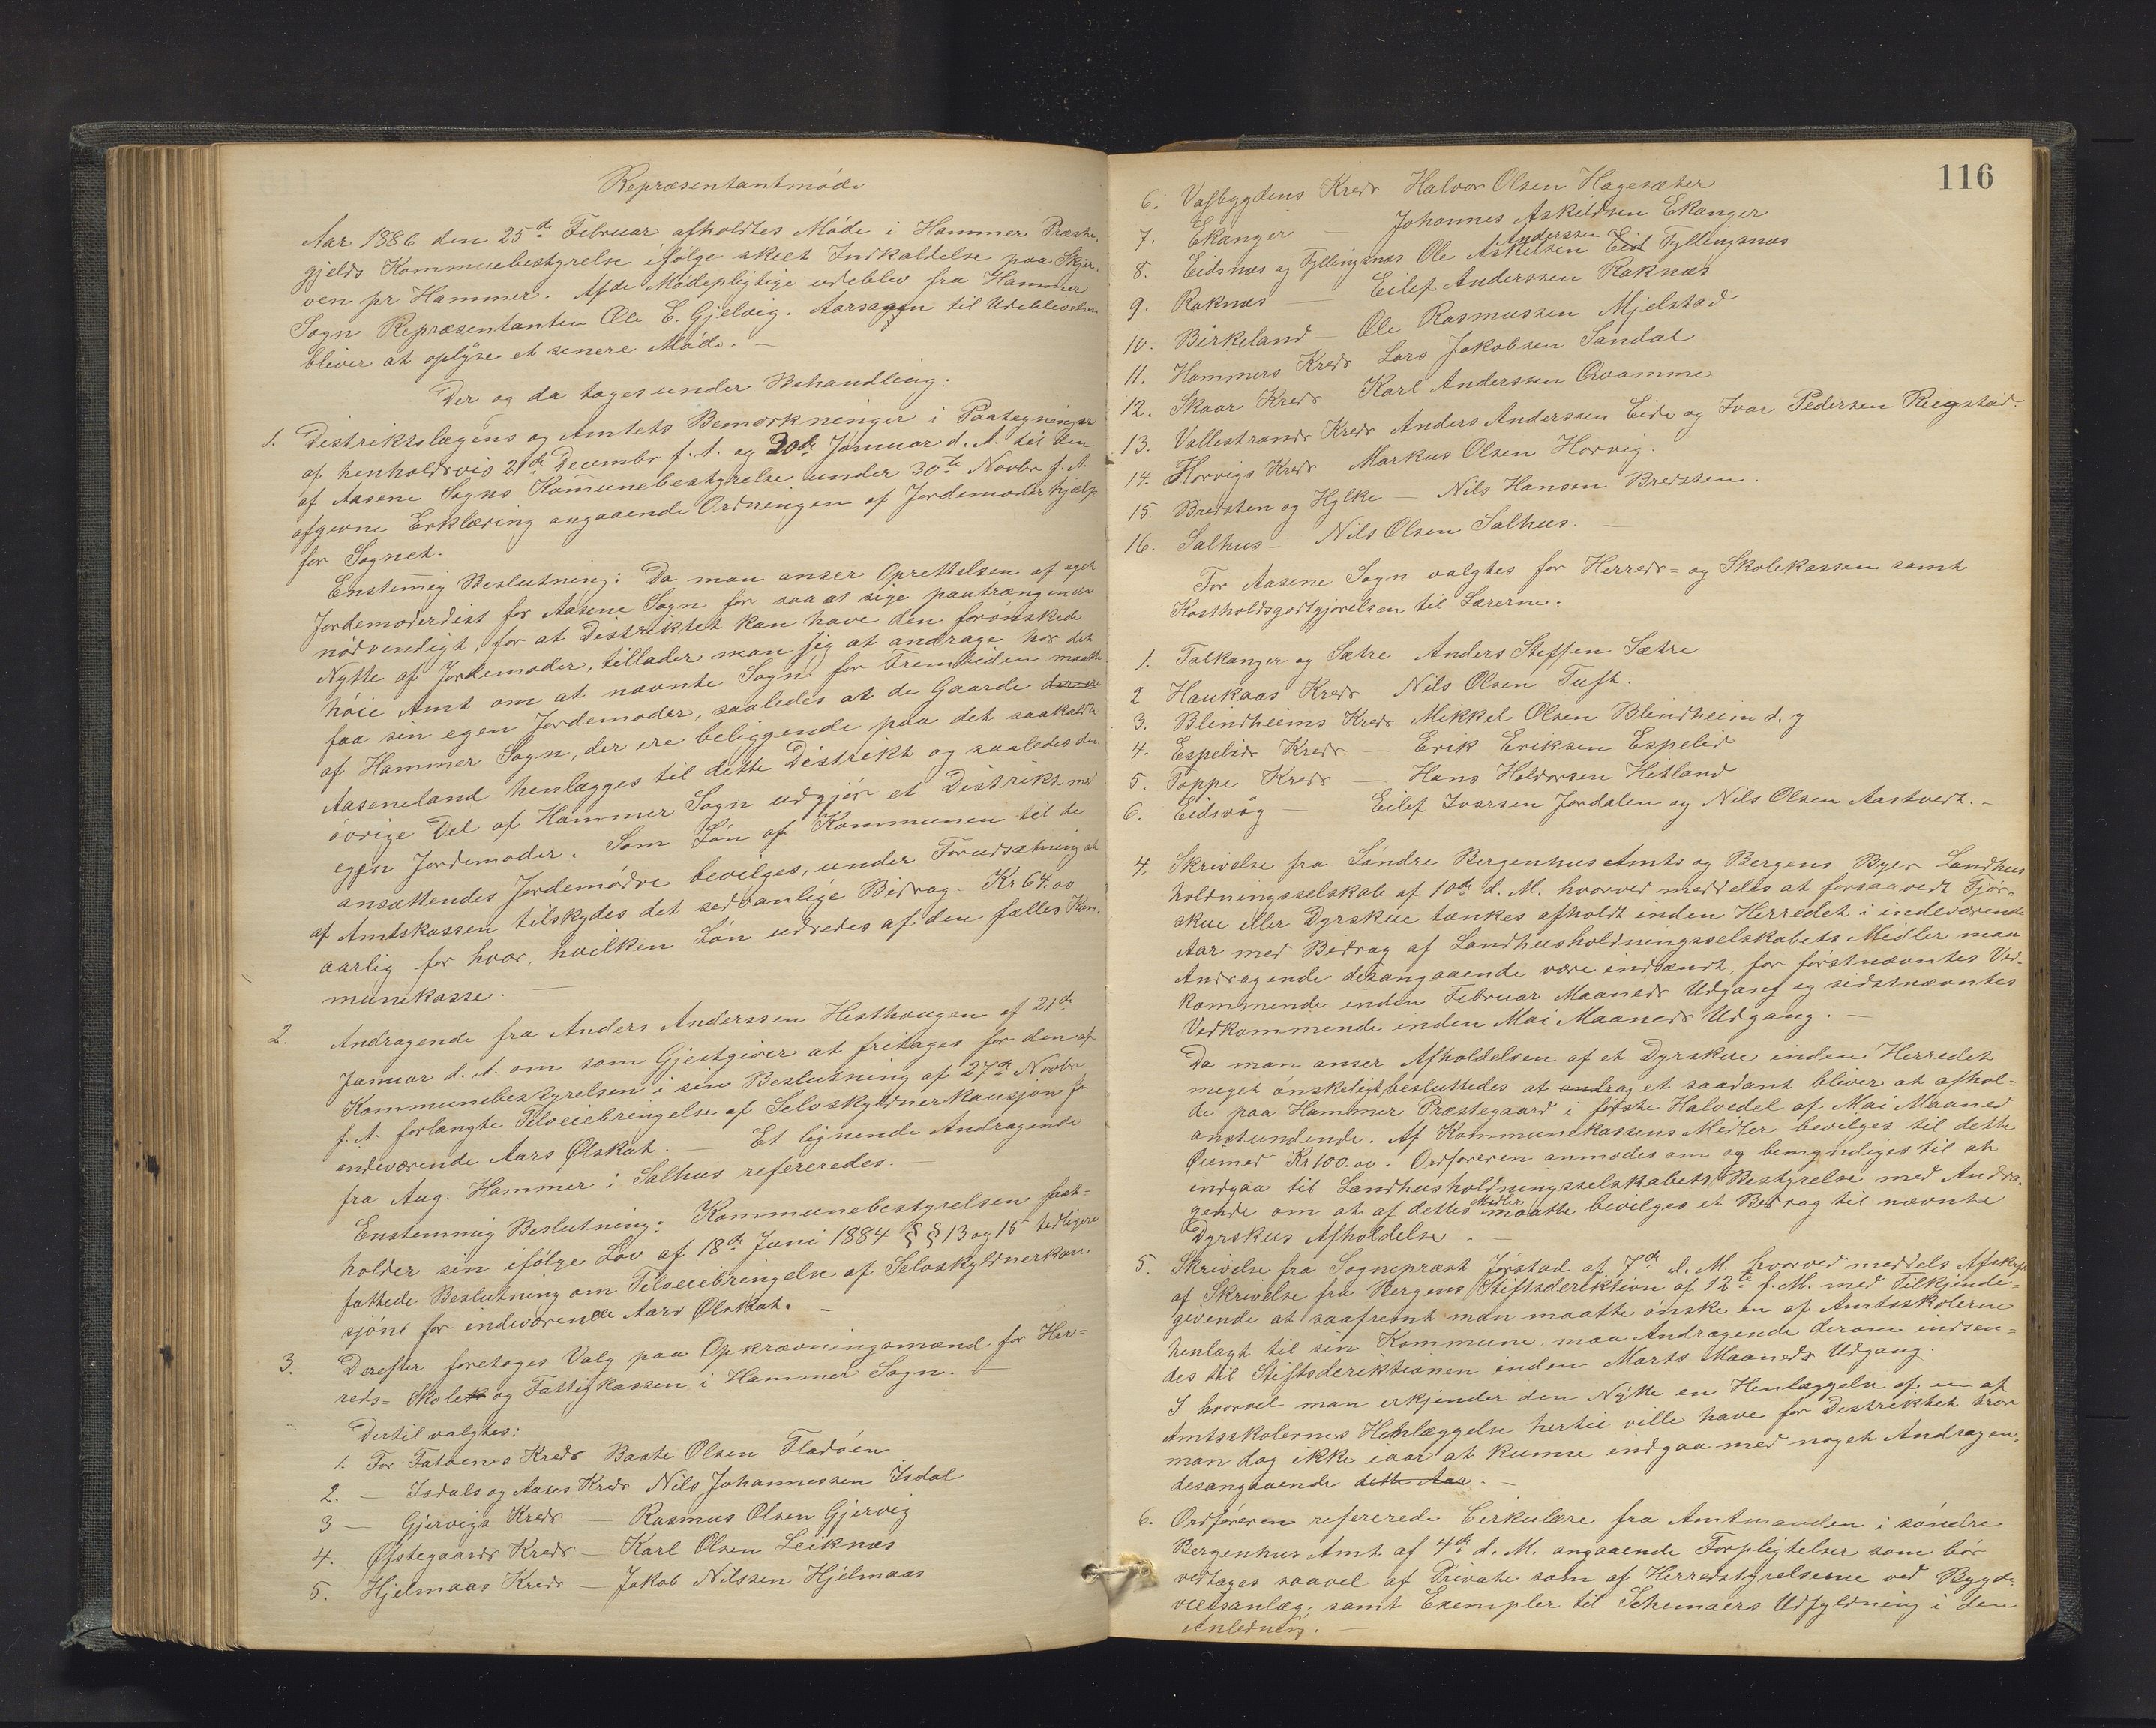 Repræsentantmøde
Aar 1886 den 25de Februar afholdtes Møde i Hammer Præste-
gjelds Kommunebestyrelse ifølge skeet Indkaldelse paa Skjer-
ven pr Hammer. Af de Mødepligtige udeblev fra Hammer
Sogn Repræsentanten Ole E. Gjelvig. Aarsagen til Udeblivelsen
bliver at oplyse et senere Møde. —
Der og da toges under Behandling:
1. Distriktslægens og Amtets Bemerkninger i Paategninger
af henholdsvis 21de Decembr f. A. og 20de Januar d. A. til den
af Aasene Sogns Kommunebestyrelse under 30te Novbr f. A.
afgivne Erklæring angaaende Ordningen af Jordemoderhjælp
for Sognet.
Enstemmig Beslutning: Da man anser Oprettelsen af eget
Jordemoderdist for Aasene Sogn for saa at sige paatrængende
nødvendigt, for at Distriktet kan have den forønskede
Nytte af Jordemoder, tillader man sig at andrage hos det
høie Amt om at nævnte Sogn for Fremtiden maatte
faa sin egen Jordemoder, saaledes at de Gaarde der ere
af Hammer Sogn, der ere beliggende paa det saakaldte
Aaseneland henlægges til dette Distrikt og saaledes den
øvrige Del af Hammer Sogn udgjør et Distrikt med
egen Jordemoder. Som Løn af Kommunen til de
ansættendes Jordemødre bevilges, under Forudsætning at
af Amtskassen tilskydes det sedvanlige Bidrag - Kr 64.00
aarlig for hver, hvilken Løn udredes af den fælles Kom-
munekasse. —
2. Andragende fra Anders Anderssen Hesthougen af 21de
Januar d. A. om som Gjestgiver at fritages for den af
Kommunebestyrelsen i sin Beslutning af 27de Novbr
f. A. forlangte Tilveiebringelse af Selvskyldnerkausjon for
indeværende Aars Ølskat. — Et lignende Andragende
fra Aug. Hammer i Salhus refereredes. —
Enstemmig Beslutning: Kommunebestyrelsen fast-
holder sin ifølge Lov af 18de Juni 1884 § § 13 og 15 tidligere
fattede Beslutning om Tilveiebringelse af Selvskyldnerkau-
sjon for indeværende Aars Ølskat. —
3. Derefter foretoges Valg paa Opkrævningsmænd for Her-
reds- Skole og Fattigkassen i Hammer Sogn. —
Dertil valgtes:
1. For Fatnens Kreds Baste Olsen Fladøen
2. — Isdals og Aases Kreds Nils Johannessen Isdal
3 — Gjervigs Kreds — Rasmus Olsen Gjervig
4. Øfstegaards Kreds — Karl Olsen Leiknæs
5. Hjelmaas Kreds — Jakob Nilssen Hjelmaas
116
6. Vasbygdens Kreds Halvor Olsen Hagesæter
7. Ekanger — Johannes Askildsen Ekanger
8. Eidsnæs og Fyllingsnæs Ole Askilsen Anderssen Eid Fyllingsnæs
9. Raknæs — Eilef Anderssen Raknæs
10. Birkeland — Ole Rasmussen Mjelstad
11. Hammers Kreds Lars Jakobsen Sandal
12. Skaar Kreds Karl Anderssen Qvamme
13. Vallestrands Kreds Anders Anderssen Eide og Ivar Pedersen Rigstad.
14. Horvigs Kreds Markus Olsen Horvig.
15. Bredsten og Hylke — Nils Hansen Bredsten.
16. Salhus — Nils Olsen Salhus. —
For Aasene Sogn valgtes for Herreds- og Skolekassen samt
Kostholdsgodtgjørelsen til Lærerne:
1. Falkanger og Sætre Anders Steffen Sætre
2 Haukaas Kreds Nils Olsen Tuft.
3. Blendheims Kreds Mikkel Olsen Blindheim d. y
4. Espelids Kreds — Erik Eriksen Espelid
5. Toppe Kreds — Hans Haldorsen Hitland
6. Eidsvåg — Eilef Ivarsen Jordalen og Nils Olsen Aastvedt. —
4. Skrivelse fra Søndre Bergenhus Amts og Bergens Byes Landhus
holdningsselskab af 10de d. M. hvorved meddeles at forsaavidt Fjør-
skue eller Dyrskue tænkes afholdt inden Herredet i indeværende
Aar med Bidrag af Landhusholdningsselskabets Midler maa
Andragende desangaaende være indsendt, for førstnævntes Ved-
kommende inden Februar Maaneds Udgang og sidstnævntes
Vedkommende inden Mai Maaneds Udgang. —
Da man anser Afholdelsen af et Dyrskue inden Herredet
meget ønskeligt, besluttedes at andrag et saadant bliver at afhol-
de paa Hammer Præstegaard i første Halvedel af Mai Maaned
anstundende. Af Kommunekassens Midler bevilges til dette
Øiemed Kr 100.00. Ordføreren anmodes om og bemyndiges til at
indgaa til Landhusholdningsselskabets Bestyrelse med Andra-
gende om at af dettes Midler maatte bevilges et Bidrag til nævnte
Dyrskus Afholdelse. —
5. Skrivelse fra Sognepræst Jørstad af 7de d. M. hvorved meddels Afskrift
af Skrivelse fra Bergens Stiftsderiktion af 12te f. M. med Tilkjende-
givende at saafremt man maatte ønske en af Amtsskolerne
henlagt til sin Kommune, maa Andragende derom indsen-
des til Stiftsderiktionen inden Marts Maaneds Udgang.
I hvorvel man erkjender den Nytte en Henlæggelse af en af
Amtsskolernes Henlæggelse hertil ville have for Distriktet tror
man dog ikke iaar at kunne indgaa med noget Andragen-
desangaaende dette Aar. —
6. Ordføreren refererede Cirkulære fra Amtmanden i søndre
Bergenhus Amt af 4de d. M. angaaende Forpligtelser som bør
vedtages saavel af Private som af Herredstyrelserne ved Bygd-
veisanlæg, samt Exempler til Schemaers Udfyldning i den
Anledning. —